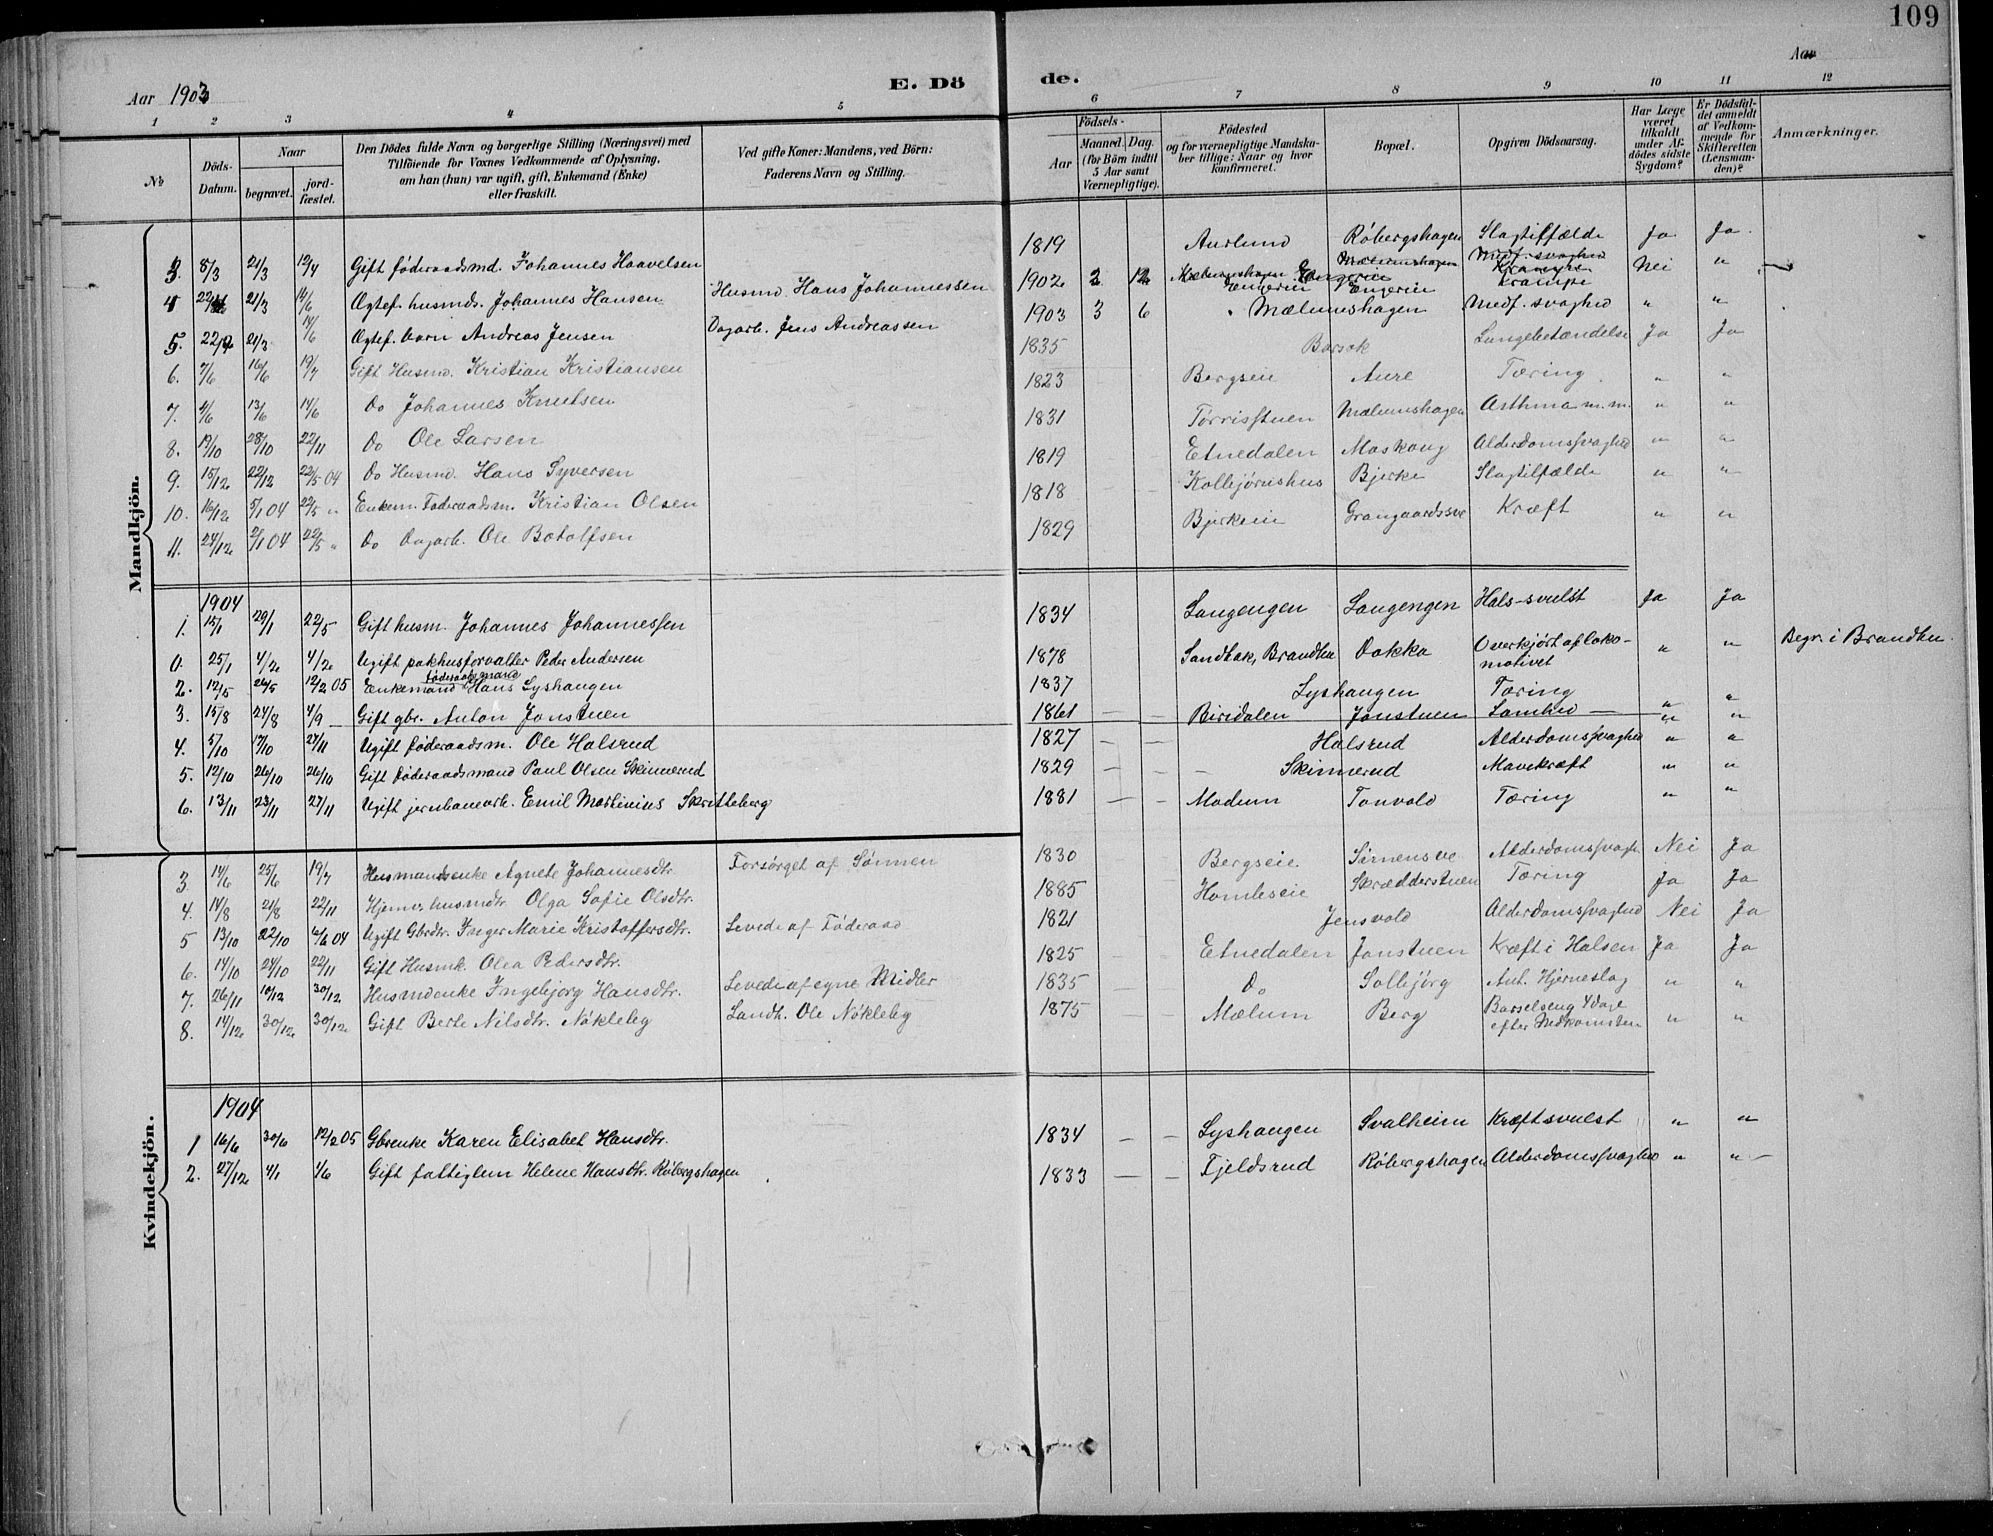 109
Aar 1903
E. Dö
de.
Aar
1 2 3 4 5 6 7 8 9 10 11 12
№
Döds-Datum.
Naar
begravet.
jord-fæstet.
Den Dödes fulde Navn og borgerlige Stilling (Næringsvei) med
Tilföiende for Voxnes Vedkommende af Oplysning,
om han (hun) var ugift, gift, Enkemand (Enke)
eller fraskilt.
Ved gifte Koner: Mandens, ved Börn:
Faderens Navn og Stilling.
Födsels-
Aar
Maaned. Dag.
(for Börn indtil
5 Aar samt
Værnepligtige).
Födested
og for værnepligtige Mandska-
ber tillige: Naar og hvor
konfirmeret.
Bopæl.
Opgiven Dödsaarsag.
Har Læge
været
tilkaldt
under Af-
dödes sidste
Sygdom?
Er Dödsfal-
det anmeldt
af Vedkom-
mende for
Skifteretten
(Lensman-
den)?
Anmærkninger.
Mandkjön.
3. 8/3 21/3 12/4 Gift føderaadsmd. Johannes Haavelsen 1819 Aurlund Røbergshagen Slagtilfælde Ja Ja
4 21/3 14/6 Ægtef. husmds. Johannes Hansen Husmd. Hans Johannessen 1902 2 12 Engerein Engerein Krampe Nei "
5. 21/3 14/6 Ægtef. barn Andreas Jensen Dagarb. Jens Andreassen 1903 3 6 Mælumshagen Medf. svaghed " "
6. 7/6 16/6 19/7 Gift Husmd. Kristian Kristiansen 1835 Barsok Lungebetændelse Ja Ja
7. 4/6 13/6 14/6 Do Johannes Knutsen 1823 Bergseie Aure Tæring " "
8. 19/10 28/10 22/11 Do Ole Larsen 1831 Tørrisstuen Mælumshagen Asthma m.m. " "
9. 15/12 22/12 22/5 04 Do Husmd. Hans Syversen 1819 Etnedalen Maskoug Alderdomssvaghed " "
10. 16/12 5/1 04 22/5 " Enkem. Føderaadsm. Kristian Olsen 1818 Kollejørnshus Bjerke Slagtilfælde " "
11. 24/12 2/1 04 22/5 " Do Dagarb. Ole Botolfsen 1829 Bjerkeeie Grangaardsse Kræft " "
1904
1. 15/1 29/1 22/5 Gift husm. Johannes Johannessen 1834 Langengen Langengen Hals-svulst Ja Ja
0. 25/1 4/2 4/2 Ugift pakhusforvalter Peder Andersen 1878 Sandbak, Brandbu Dokka Overkjørt af loko-
motivet " " Begr. i Brandbu.
føderaadsmand
2. 12/5 26/5 12/2 05 Enkemand Hans Lyshaugen 1837 Lyshaugen Tæring " "
3. 15/8 24/8 4/9 Gift gbr. Anton Jonstuen 1861 — — Biridalen Jonstuen Lamhed — " "
4. 5/10 17/10 27/11 Ugift føderaadsm. Ole Halsrud 1827 — — Halsrud Alderdomssvaghed " "
5. 12/10 26/10 26/10 Gift føderaadsmand Paul Olsen Skinnerud 1829 — — — Skinnerud Mavekræft " "
6. 13/11 23/11 27/11 Ugift jernbanearb. Emil Martinius Skritteberg 1881 — — Modum Tonvold Tæring " "
Kvindekjön.
3. 14/6 25/6 19/7 Husmandsenke Agnete Johannesdtr. Forsørget af Sønnen 1830 Bergseie. Alderdomssvagh. Nei Ja
4. 14/8 21/8 22/11 Hjemv. husmdtr. Olga Sofie Olsdtr. 1885 Homleseie Skrædderstuen Tæring Ja Ja
5 13/10 22/10 6/6 04 Ugift Gbrdtr. Inger Marie Kristoffersdtr. Levede af Føderaad 1821 Jensvold Alderdomssvaghed Nei Ja
6. 14/10 24/10 22/11 Gift Husmk. Olea Pedersdtr. 1825 Etnedalen Jonstuen Kræft i Halsen Ja Ja
7. 26/11 10/12 30/12 Husmdenke Ingebjørg Hansdtr. Levede af egne Midler 1835 Do Solbjørg Ant. Hjerneslag " "
8. 14/12 30/12 30/12 Gift Berte Nilsdtr. Nøkleby Landh. Ole Nøkleby 1875 Mælum Berg Barselseng 4 dage
efter Nedkomsten " "
1904
1 16/6 30/6 12/2 05 Gbrenke Karen Elisabet Hansdtr. 1834 — — Lyshaugen Svalheim Kræftsvulst " "
2. 27/12 4/1 1/6 Gift fattiglem Helene Hansdtr. Røbergshagen 1833 — — Fjeldsrud Røbergshagen Alderdomssvaghed " "